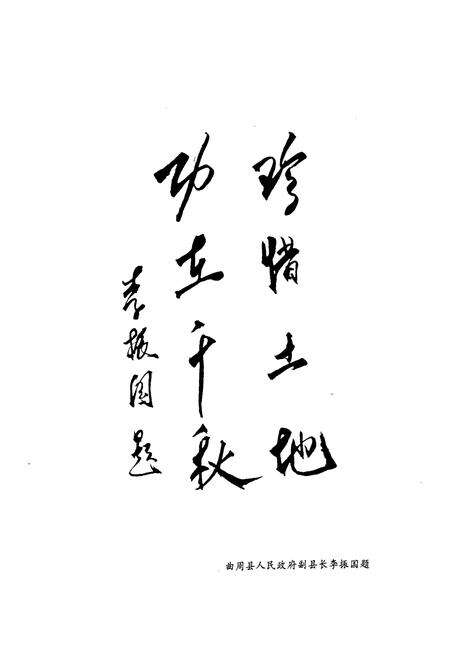 珍惜土地
功在千秋
李振国题
曲周县人民政府副县长李振国题